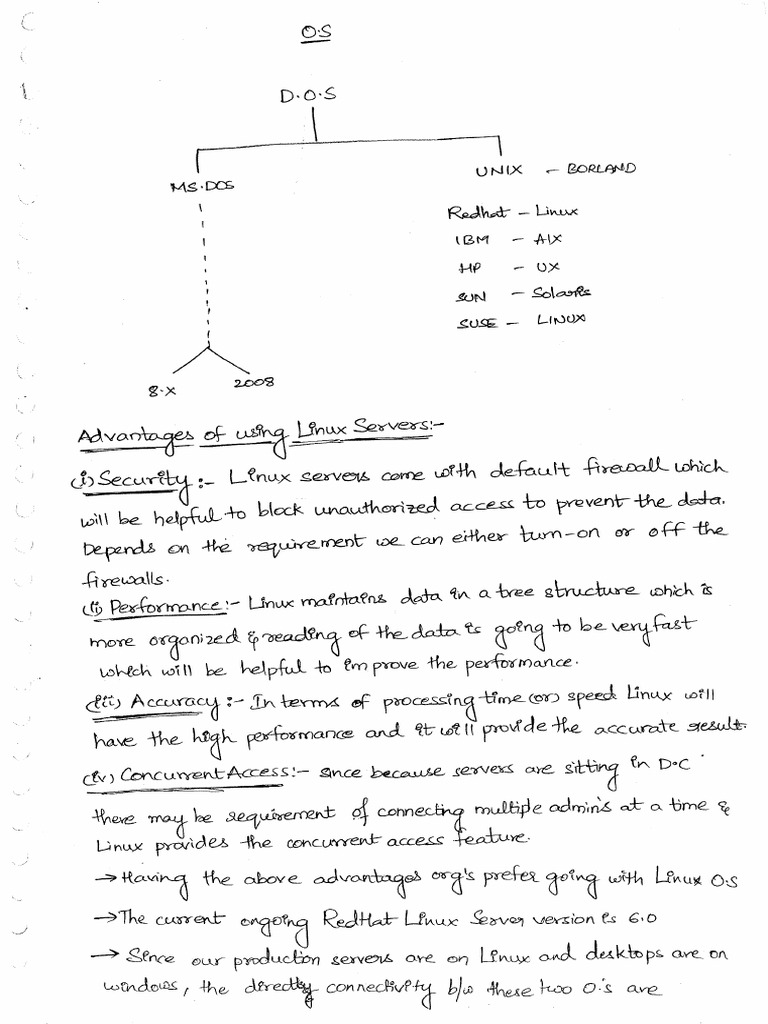 O.S
D.O.S
MS.DOS
UNIX - BORLAND
Redhat - Linux
IBM - AIX
HP - UX
SUN - Solaris
SUSE - LINUX
8.X 2008
Advantages of using Linux Servers:-
(i) Security :- Linux servers come with default firewall which
will be helpful to block unauthorized access to prevent the data.
Depends on the requirement we can either turn-on or off the
firewalls.
(ii) Performance:- Linux maintains data in a tree structure which is
more organized & reading of the data is going to be very fast
which will be helpful to improve the performance.
(iii) Accuracy :- In terms of processing time (or) speed Linux will
have the high performance and it will provide the accurate result.
(iv) Concurrent Access:- since because servers are sitting in D.C
there may be requirement of connecting multiple admin's at a time &
Linux provides the concurrent access feature.
→ Having the above advantages org's prefer going with Linux O.S
→ The current ongoing RedHat Linux Server version is 6.0
→ Since our production servers are on Linux and desktops are on
windows, the directly connectivity b/w these two O.'s are